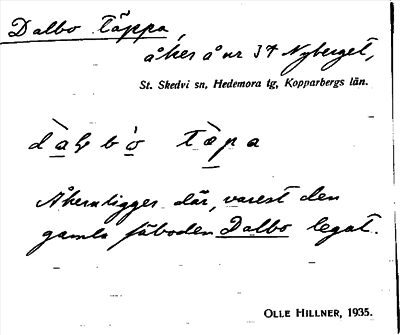 Dalbo täppa,
åker å nr 34 Nyberget,
St. Skedvi sn, Hedemora tg, Kopparbergs län.
Åkern ligger där, varest den
gamla fäboden Dalbo legat.
OLLE HILLNER, 1935.